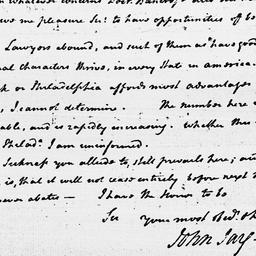 me pleasure Sir: to have opportunities of
Lawyers abound, and such of them as have good
characters thrive, in every State in america.
or Philadelphia affords most advantages
, I cannot determine. The number here
able, and is rapidly increasing. whether this
Philad.ᵃ I am uninformed.
Sickness you allude to, still prevails here; and
is, that it will not cease entirely before next
abates — I have the Honor to be
Sir your most ob.ᵗ
John Jay.